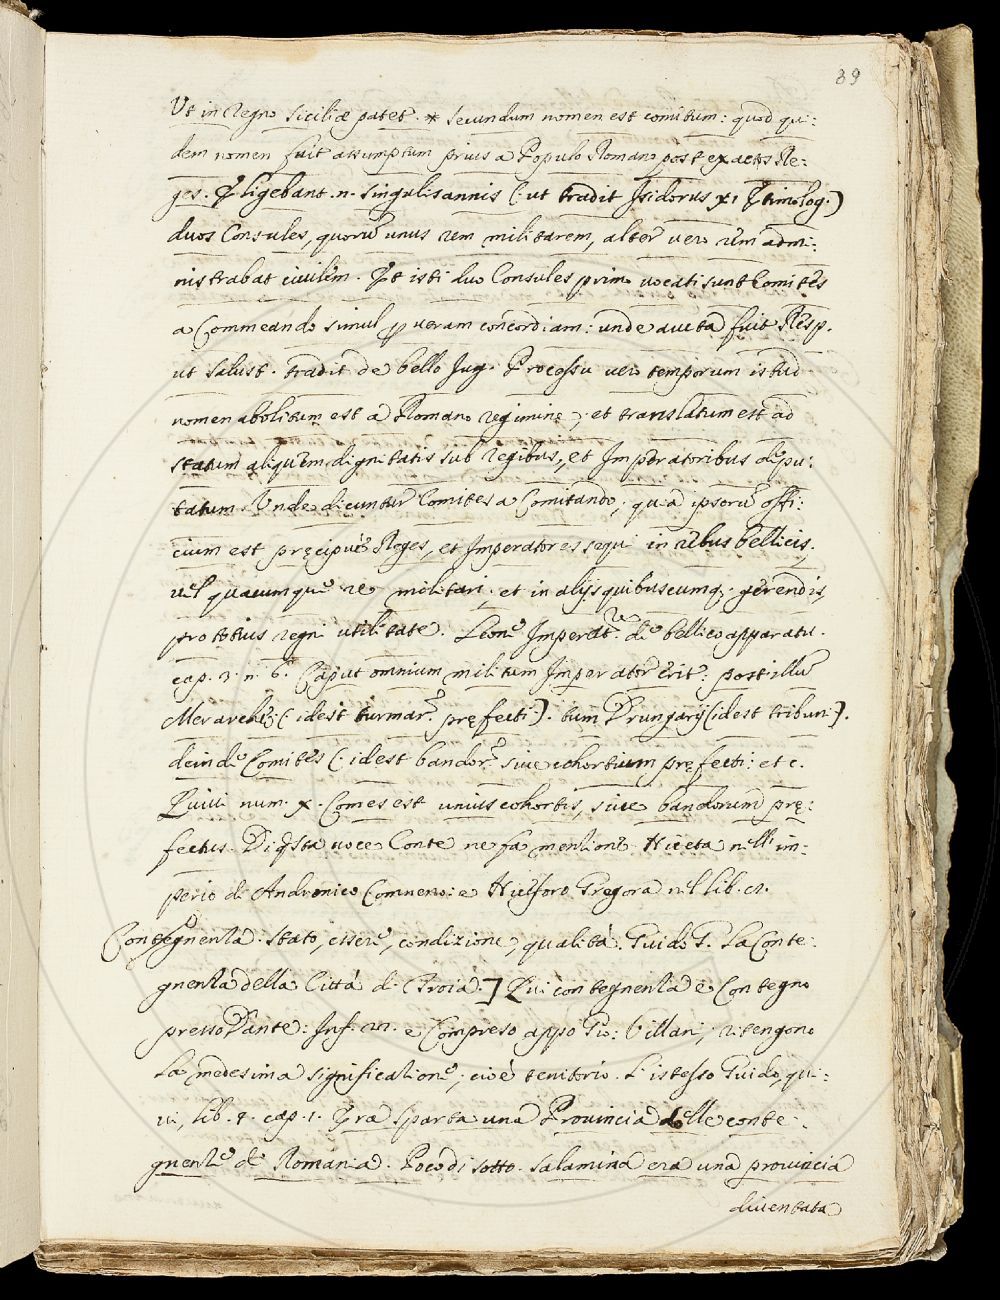 89
Ut in Regno Siciliæ patet. * Secundum nomen est comitum: quod qui:
dem nomen fuit assumptum prius a Populo Romano post exactos Re:
ges. Eligebant. n. singulis annis (: ut tradit Isidorus xi Etimolog.)
duos Consules, quorũ unus rem militarem, alter vero rem admi:
nistrabat civilem. Et isti duo Consules primo vocati sunt Comites
a Commeando simul p veram concordiam: unde aucta fuit Resp.
ut Salust. tradit de bello Jug. Processu vero temporum istud
nomen abolitum est a Romano regimine; et translatum est ad
statum aliquem dignitatis sub Regibus, et Imperatoribus depu:
tatum. Unde dicuntur Comites a Comitando; quia ipsorũ offi:
cium est pręcipuè Reges, et Imperatores sequi in rebus bellicis,
vel quacumque re militari, et in alijs quibuscumq; gerendis,
pro totius regni utilitate. Leone Imperat.re de bellico apparatu.
cap. 3. n. 6. Caput omnium militum Imperator erit: post illũ
Merarche; (idest turmar. pręfecti:). tum Drungarij (idest tribuni).
deinde Comites (: idest bandor. sive cohortium pręfecti: et c.
Quivi num. x. Comes est unius cohortis, sive bandorum prę:
fectus. Di qsta voce Conte ne fa mentione Niceta nell' im:
perio di Andronico Comneno: e Niceforo Gregora nel lib.
Contegnenza. Stato, essere, condizione, qualità. Guido G. La Conte:
gnenza della Città di Troia.] Qui contegnenza e Contegno
presso Dante: Inf. e Compreso appo Gio: Villani, ritengono
la medesima significazione; cioè territorio. L'istesso Guido, qui:
vi, lib. 4. cap. 1. Era Sparta una Provincia delle conte:
gnenze di Romania. Poco di sotto. Salamina era una provincia
diventata